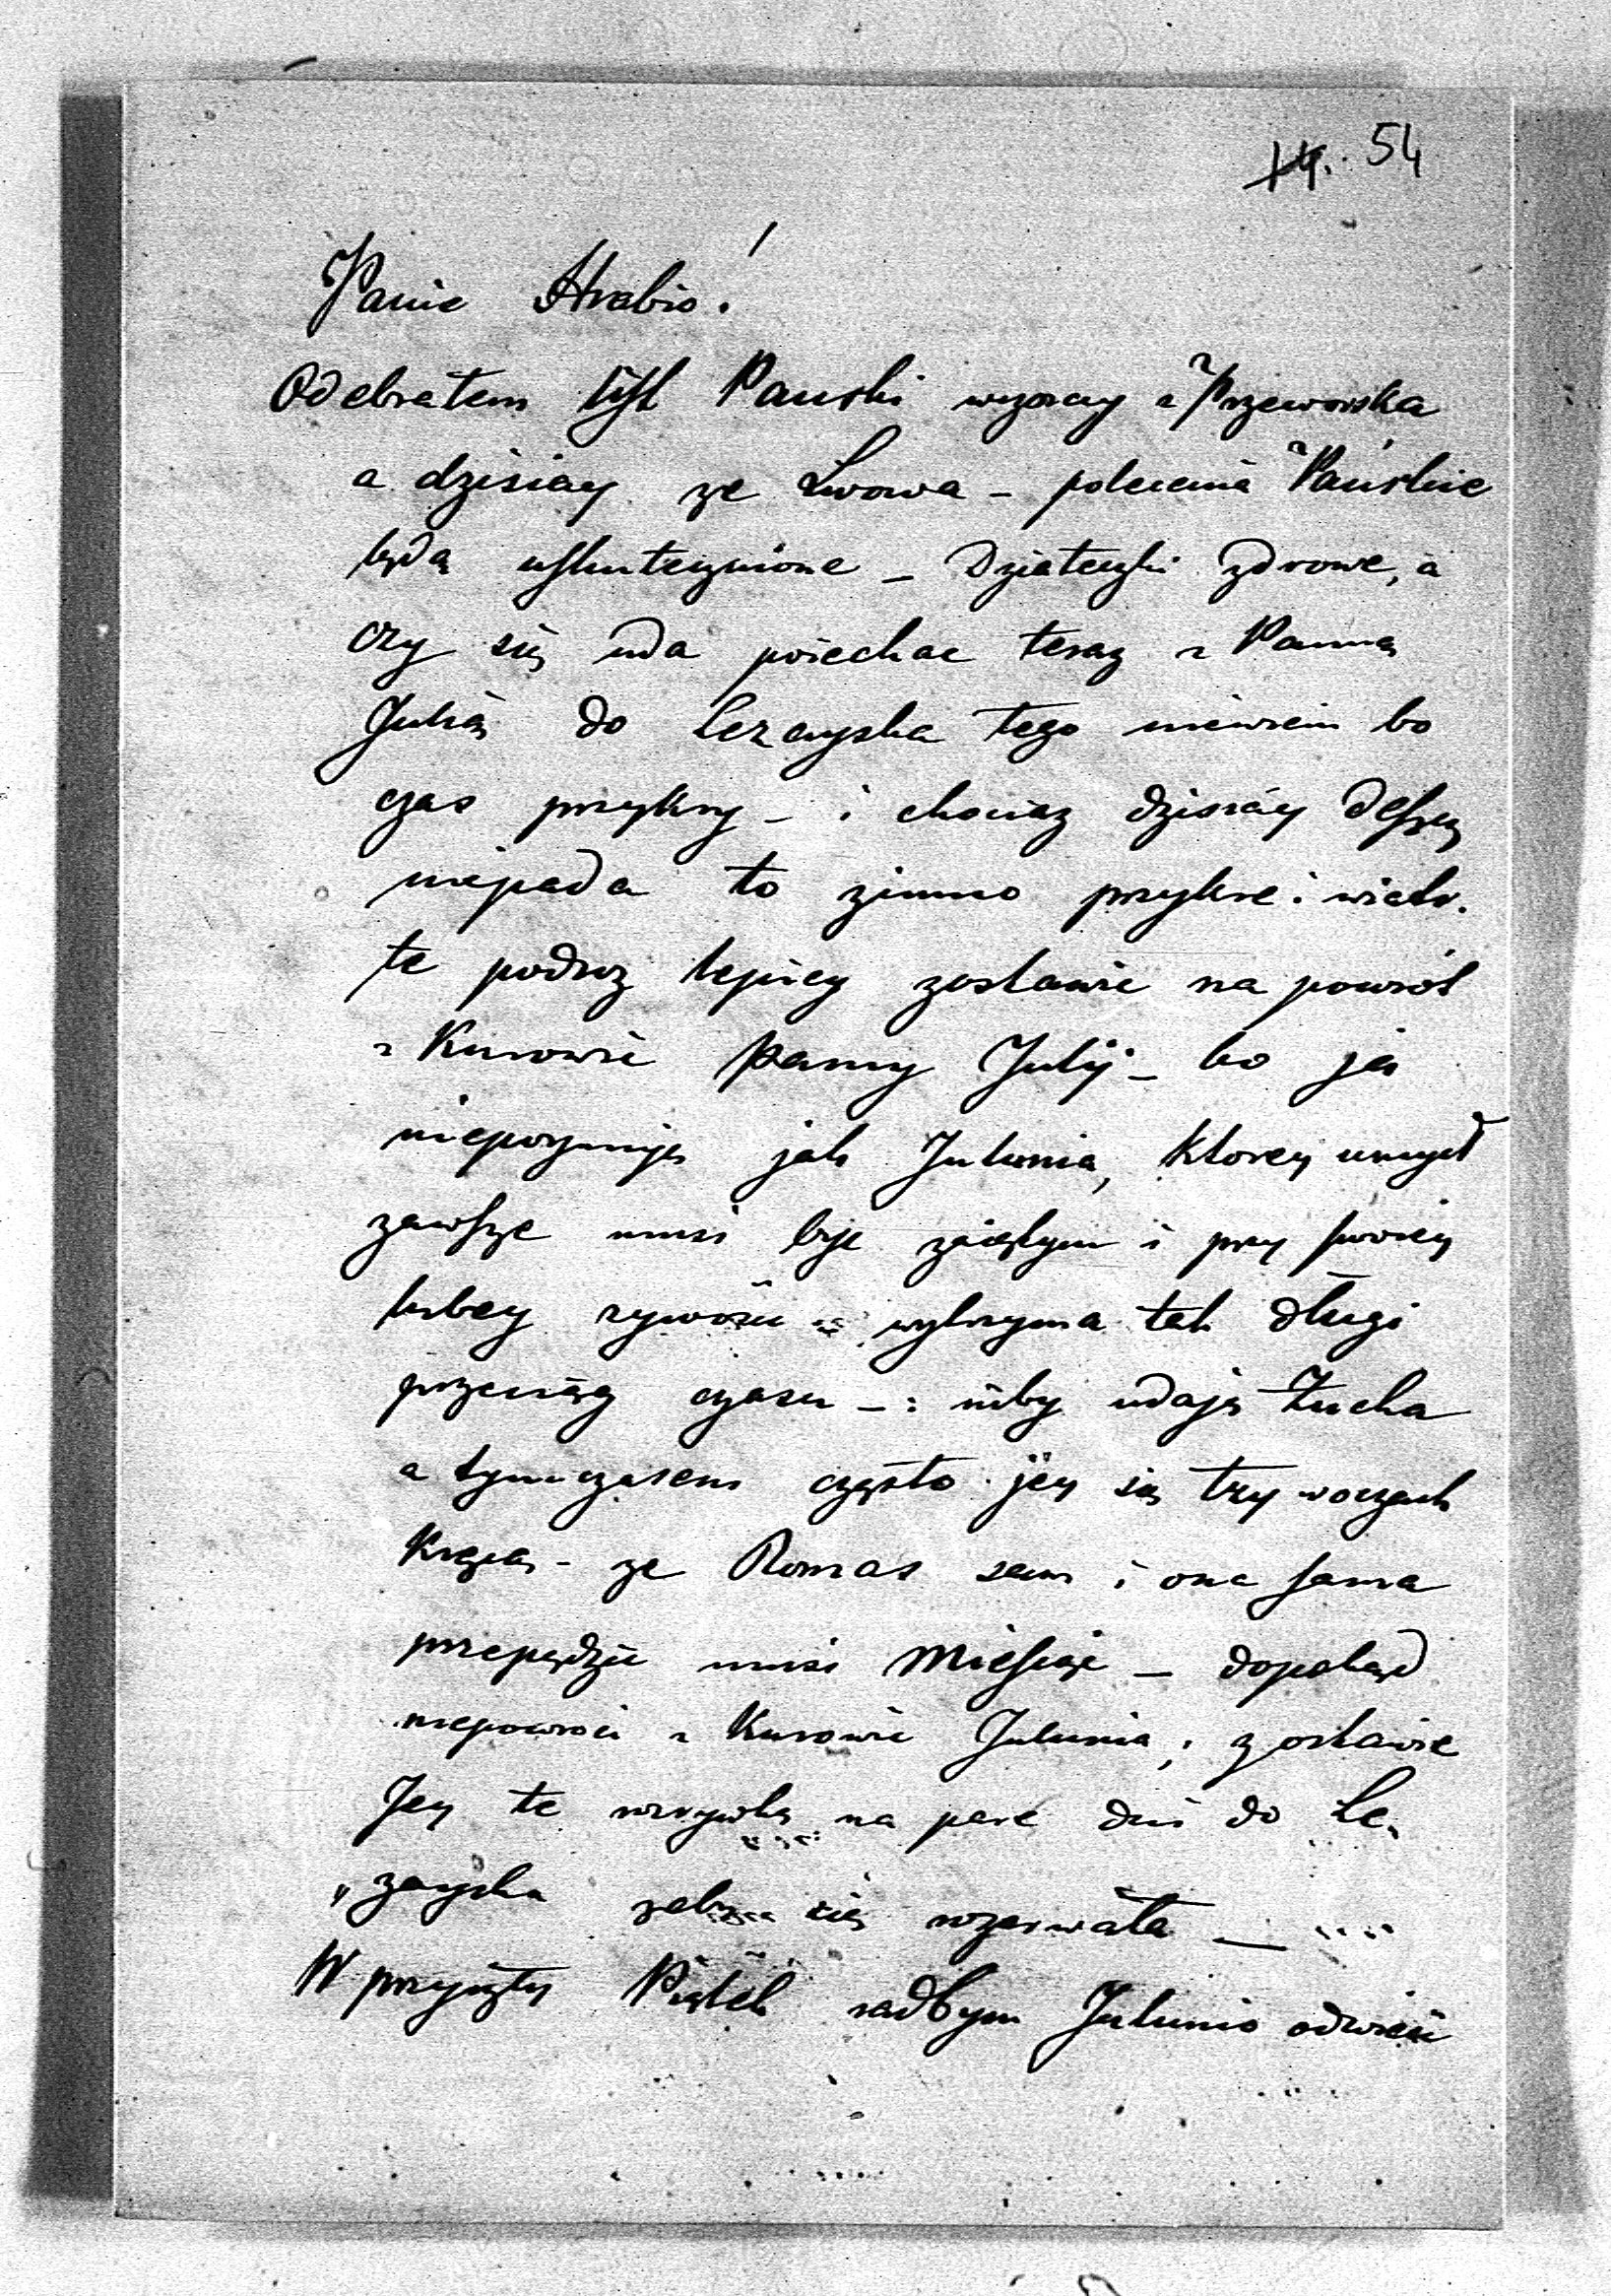 14. 54
Panie Hrabio!
Odebratem list Panski wczoray z Przeworska
a dzisiay ze Lwowa – polecenia Pańskie
będą uskutecznione – Dziateczki zdrowe, a
czy się uda poiechac teraz z Panną
Julią do Lezayska tego niewiem bo
czas przykry – i chociaz dzisiay deszcz
niepada to zimno przykre i wiatr.
te podroz lepiey zostawic na powrót
z Kurowic Panny Julij – bo ja
niepoymuję jak Julunia, ktorey umysł
zawsze musi byc zaiętym i przy swoiey
lubey zywości wytrzyma tak długi
przeciąg czasu – : niby udaje Zucha
a tymczasem często jey się łzy w oczach
Kręcą – ze Romas sam i ona sama
przepędzić musi Miesiąc – dopokąd
niepowroci z Kurowic Julunia, zostawie
Jey te rozrywkę na pare dni do Le„
„zayska zeby się rozerwała –
W przyszły Piątek radbym Julunio odwieść